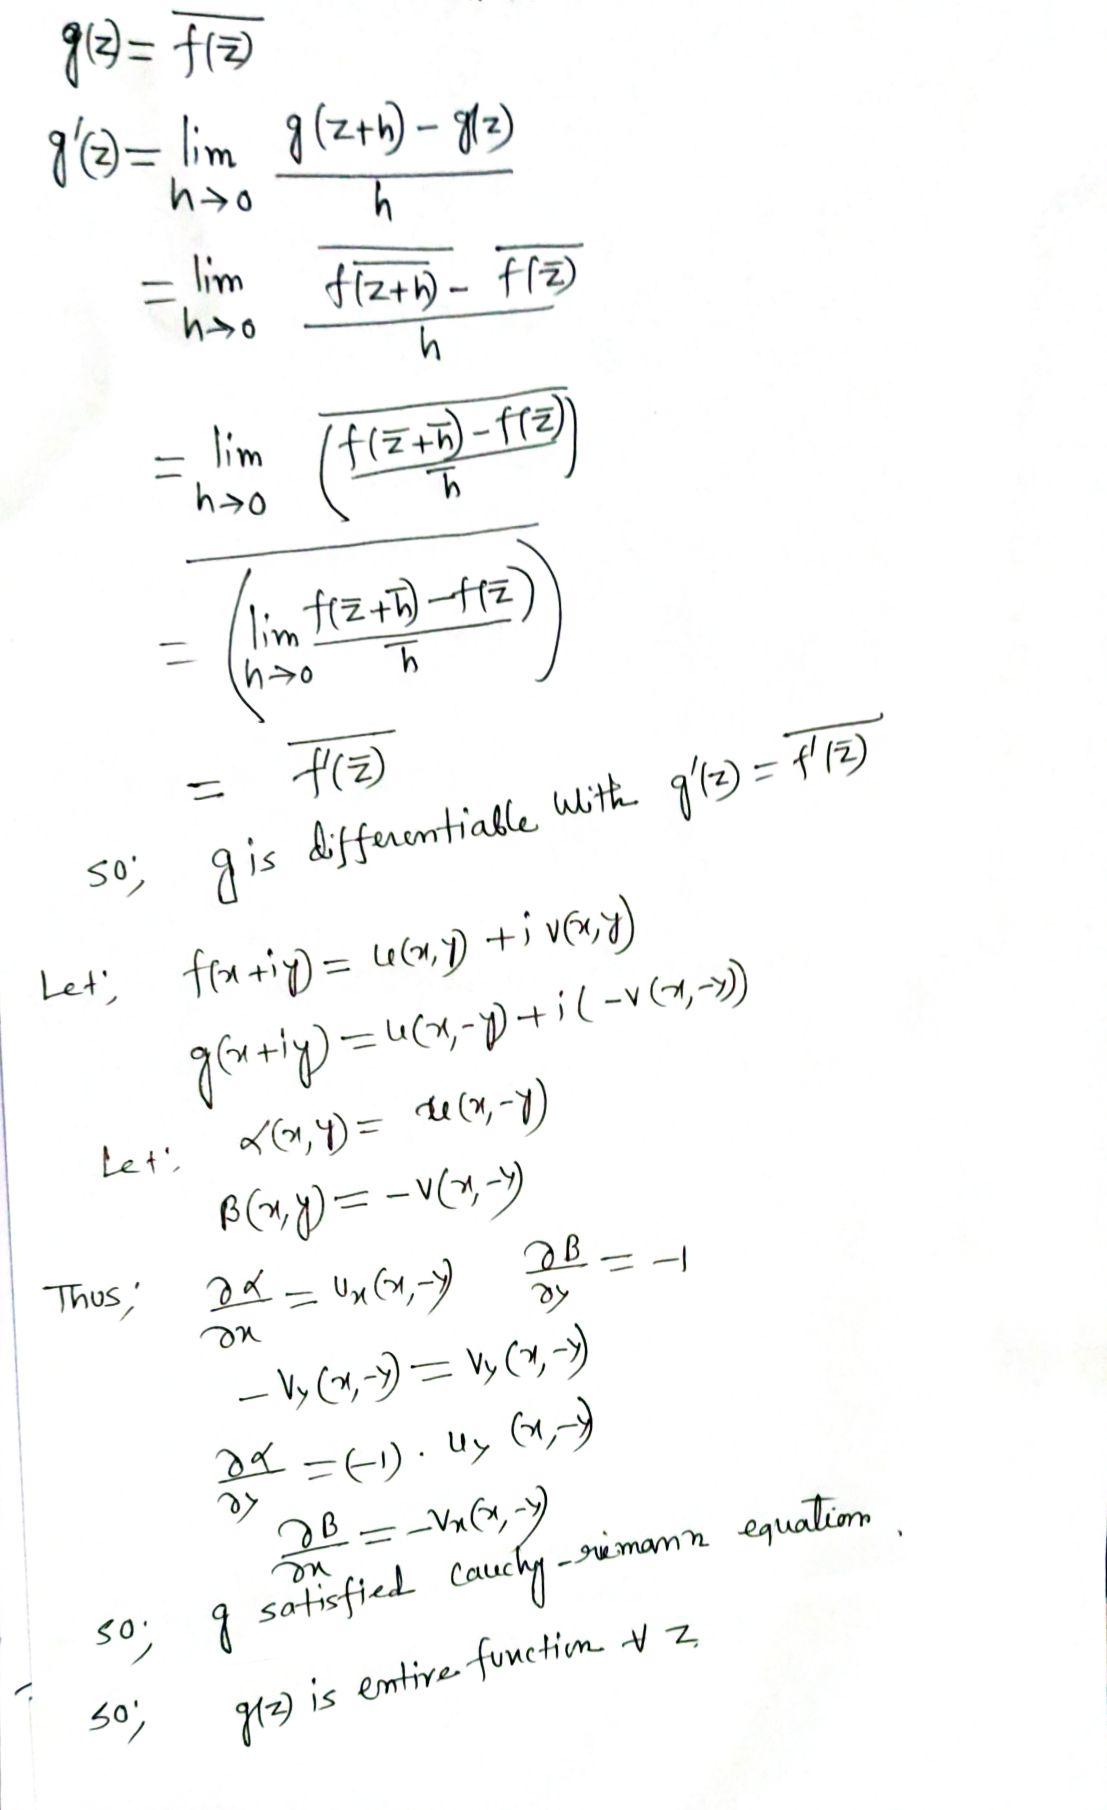 g(z) = \overline{f(\bar{z})}
g'(z) = \lim_{h→0} \frac{g(z+h) - g(z)}{h}
= \lim_{h→0} \frac{\overline{f(\overline{z+h})} - \overline{f(\bar{z})}}{h}
= \lim_{h→0} \overline{\left(\frac{f(\bar{z}+\bar{h}) - f(\bar{z})}{\bar{h}}\right)}
= \overline{\left(\lim_{h→0} \frac{f(\bar{z}+\bar{h}) - f(\bar{z})}{\bar{h}}\right)}
= \overline{f'(\bar{z})}
so; g is differentiable with g'(z) = \overline{f'(\bar{z})}
Let; f(x+iy) = u(x,y) + i v(x,y)
g(x+iy) = u(x,-y) + i(-v(x,-y))
Let; α(x,y) = u(x,-y)
β(x,y) = -v(x,-y)
Thus; \frac{∂α}{∂x} = u_x(x,-y) \frac{∂β}{∂y} = -1
- v_y(x,-y) = v_y(x,-y)
\frac{∂α}{∂y} = (-1) . u_y (x,-y)
\frac{∂β}{∂x} = -v_x(x,-y)
so; g satisfied cauchy-riemann equation .
so; g(z) is entire function ∀ z.